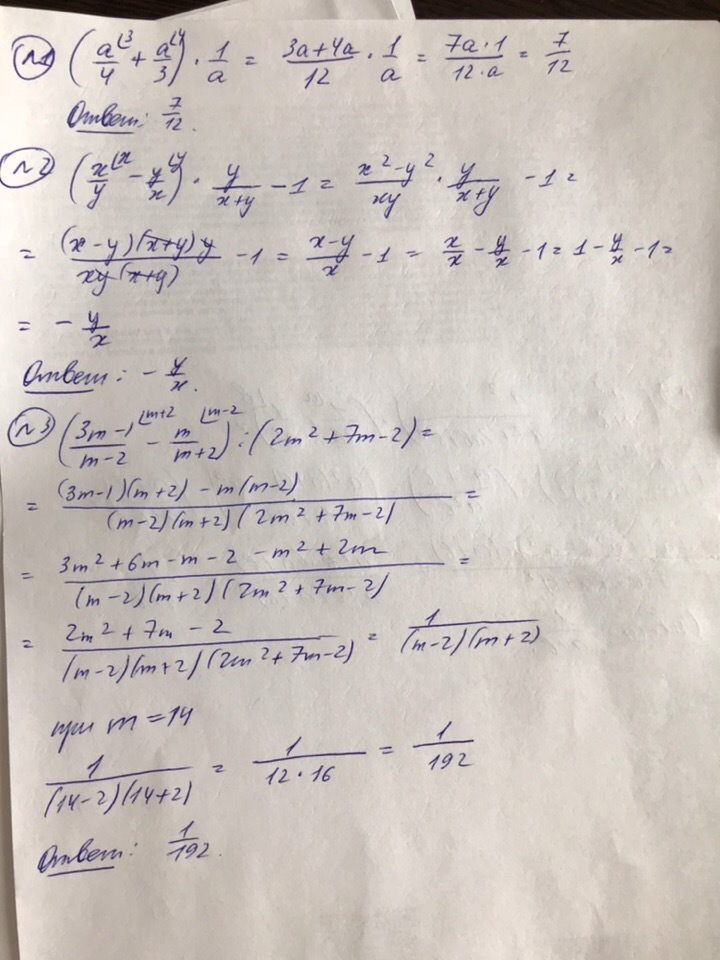 №1 (a⌊3/4 + a⌊4/3) · 1/a = 3a+4a/12 · 1/a = 7a·1/12·a = 7/12
Ответ: 7/12.
№2 (x⌊x/y − y⌊y/x) · y/x+y − 1 = x²−y²/xy · y/x+y − 1 =
= (x−y)(x+y)y/xy(x+y) − 1 = x−y/x − 1 = x/x − y/x − 1 = 1 − y/x − 1 =
= − y/x
Ответ: − y/x.
№3 (3m−1⌊m+2/m−2 − m⌊m−2/m+2) : (2m²+7m−2) =
= (3m−1)(m+2) − m(m−2)/(m−2)(m+2)(2m²+7m−2) =
= 3m²+6m−m−2−m²+2m/(m−2)(m+2)(2m²+7m−2) =
= 2m²+7m−2/(m−2)(m+2)(2m²+7m−2) = 1/(m−2)(m+2)
при m=14
1/(14−2)(14+2) = 1/12·16 = 1/192
Ответ: 1/192.